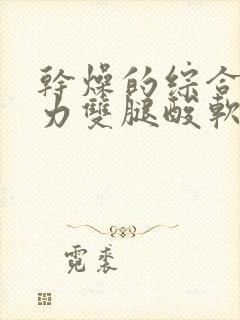 幹燥的綜合
力雙腿酸軟
霓裘